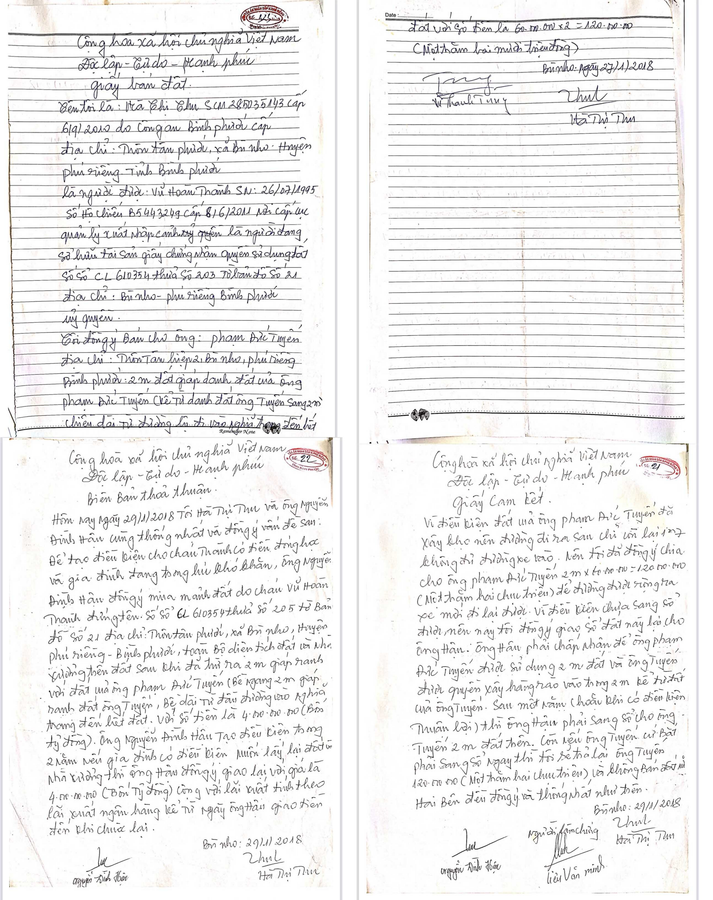 Cộng hòa xã hội chủ nghĩa Việt Nam
Độc lập - Tự do - Hạnh phúc
giấy bán đất.
Tên tôi là: Hà Thị Thu SCM 285035143 cấp
6/9/2010 do Công an Bình phước cấp
địa chỉ: Thôn tân phước, xã Bù nho - Huyện
phú riềng - Tỉnh Bình phước
là người được: Vũ Hoàn Thành SN: 26/07/1995
Số Hộ chiếu B5443249 cấp 8/6/2011 Nơi cấp cục
quản lý xuất nhập cảnh uỷ quyền là người đang
sở hữu tài sản giấy chứng nhận quyền sử dụng đất
Số Sổ CL 610354 thửa Số 203 Tờ bản đồ Số 21
địa chỉ: Bù nho - phú riềng Bình phước
uỷ quyền.
Tôi đồng ý Bán cho ông: phạm Đức Tuyến
địa chỉ: Thôn Tân hiệp 2, Bù nho, phú riềng
Bình phước: 2m đất giáp ranh đất của ông
phạm Đức Tuyến (kể Từ ranh đất ông Tuyến Sang 2m
chiều dài Từ đường vào nghĩa trang đến hết
Date:
đất với số tiền là 60.000.000 x 2 = 120.000.000
(Một trăm hai mươi triệu đồng)
Bù nho, ngày 27/1/2018
Hà Thị Thu
Cộng hòa xã hội chủ nghĩa Việt Nam
Độc lập - Tự do - Hạnh phúc
Biên Bản thoả thuận.
Hôm nay ngày 29/1/2018 Tôi Hà Thị Thu và ông Nguyễn
Đình Hậu cùng thống nhất và đồng ý vấn đề sau.
Để tạo điều kiện cho cháu Thành có tiền đóng học
và gia đình đang trong lúc khó khăn, ông Nguyễn
Đình Hậu đồng ý mua mảnh đất do cháu Vũ Hoàn
Thành đứng tên. Số Sổ CL 610354 thửa Số 205 tờ Bản
đồ Số 21 địa chỉ: Thôn tân phước, xã Bù nho, Huyện
phú riềng - Bình phước, toàn Bộ diện tích đất và Nhà
xưởng trên đất Sau khi đã trừ ra 2m giáp ranh
với đất của ông phạm Đức Tuyến (Bề ngang 2m giáp
ranh đất ông Tuyến, Bề dài từ đầu đường vào Nghĩa
trang đến hết đất. Với Số tiền là 4.000.000.000 (Bốn
tỷ đồng). Ông Nguyễn Đình Hậu Tạo điều kiện trong
2 năm nếu gia đình có điều kiện Muốn lấy lại đất và
Nhà xưởng thì ông Hậu đồng ý giao lại với giá là
4.000.000.000 (Bốn Tỷ đồng) Cộng với lãi xuất tính theo
lãi xuất ngân hàng kể từ ngày ông Hậu giao tiền
đến khi chuộc lại.
Bù nho: 29/1/2018
Nguyễn Đình Hậu
Hà Thị Thu
Cộng hòa xã hội chủ nghĩa Việt Nam
Độc lập - Tự do - Hạnh phúc
Giấy Cam kết.
Vì điều kiện đất của ông phạm Đức Tuyến đã
xây kho nên đường đi ra sau chỉ còn lại 1m7
không đủ đường xe vào. Nên tôi đã đồng ý chia
cho ông phạm Đức Tuyến 2m x 60.000.000 = 120.000.000
(Một trăm hai chục triệu) để đường được rộng ra
xe mới đi lại được. Vì điều kiện chưa Sang Sổ
được, nên nay tôi đồng ý giao Sổ đất này lại cho
ông Hậu. Ông Hậu phải chấp Nhận để ông phạm
Đức Tuyến được Sử dụng 2m đất và ông Tuyến
được quyền xây hàng rào vào trong 2m kể từ đất
của ông Tuyến. Sau một năm (hoặc khi có điều kiện
Thuận lợi) thì ông Hậu phải Sang Sổ cho ông
Tuyến 2m đất trên. Còn nếu ông Tuyến cứ Bắt
phải Sang Sổ Ngay thì tôi Sẽ trả lại ông Tuyến
120.000.000 (Một trăm hai chục triệu) và không Bán đất nữa
Hai Bên đều đồng ý và thống nhất như trên.
Bù nho: 29/1/2018
Người làm chứng
Nguyễn Đình Hậu
Liêu Văn Minh
Hà Thị Thu